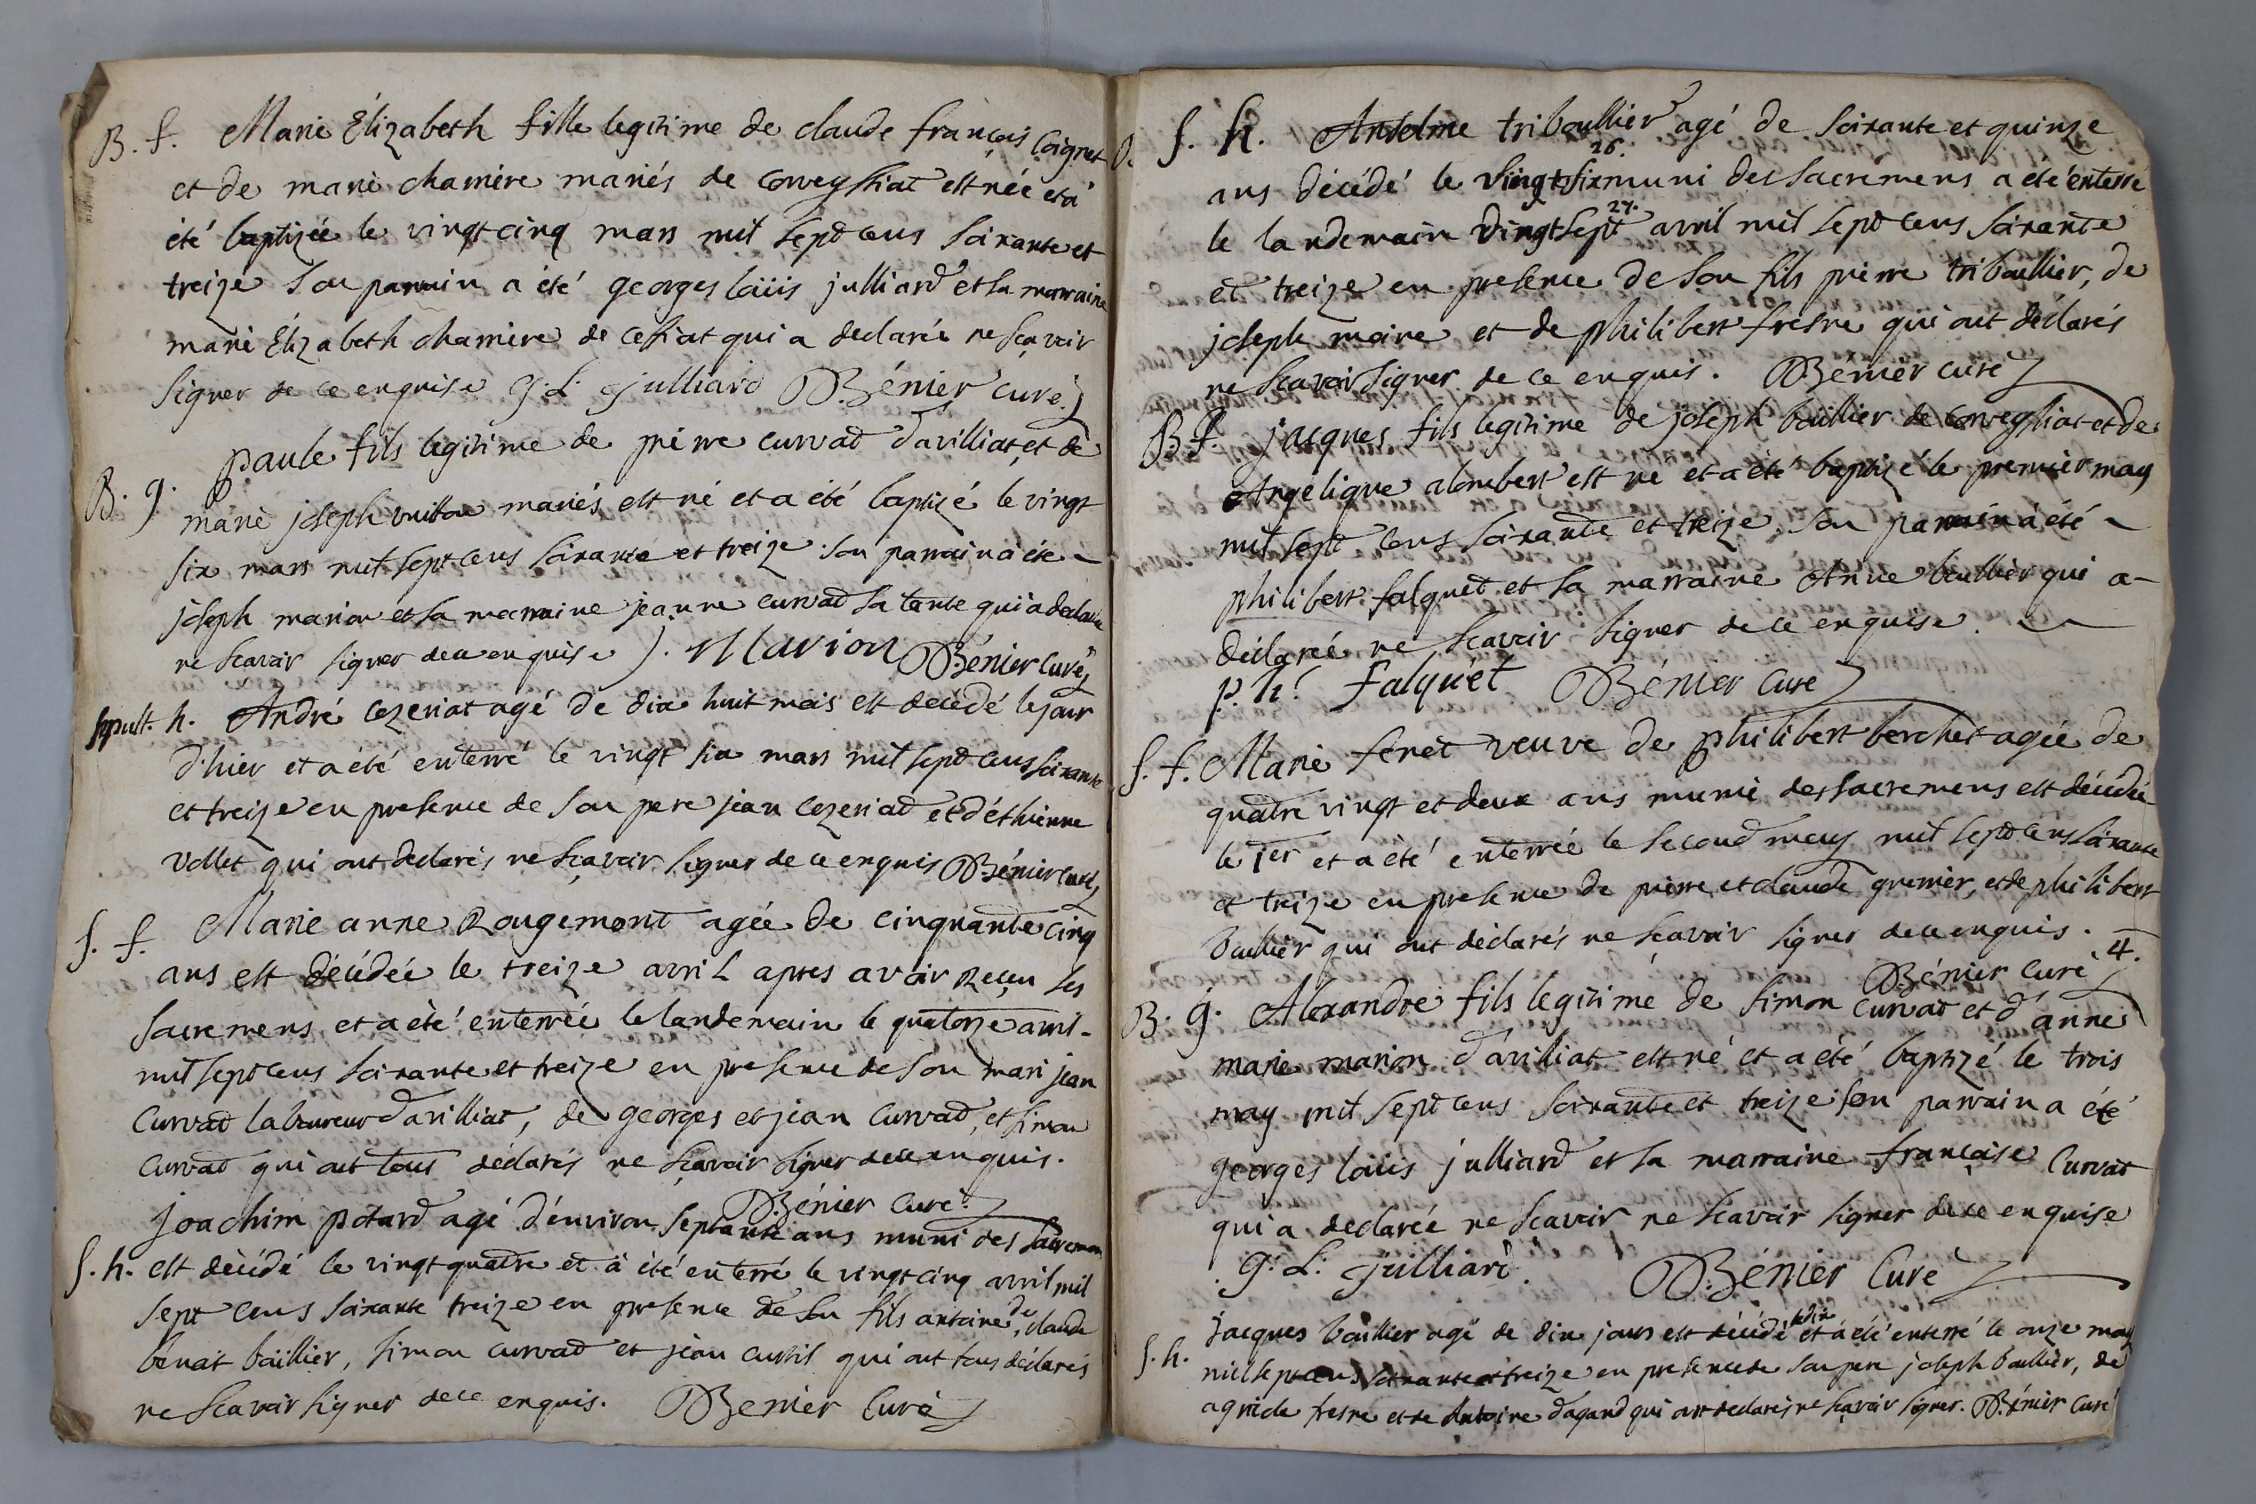 B. f. Marie Élizabeth fille legitime de claude françois Coignet
et de marie charriére mariés de Corveyssiat est née et a
été baptizée le vingt cinq mars mil sept cens soixante et
treize son parrain a été georges loüis julliard et sa marraine
marie Élizabeth charriére de cessiat qui a declarée ne sçavoir
signer de ce enquise g: L: Julliard Bénier curé
B. g. paule fils legitime de pierre curvat d'arilliat, et de
marie joseph mariés est né et a été baptizé le vingt
six mars mil sept cens soixante et treize son parrain a été
joseph marion et sa marraine jeanne curvat sa tante qui a declaré
ne scavoir signer de ce enquise J. Marion Bénier curé
sepult. h. André cezeriat agé de dix huit mois est decédé le jour
d'hier et a été enterré le vingt six mars mil sept cens soixante
et treize en presence de son pere jean cezeriat et d'éthienne
vollet qui ont declarés ne sçavoir signer de ce enquis Bénier curé
s. f. Marie anne Rougemont agée de cinquante cinq
ans est décédée le treize avril apres avoir Reçeu ses
sacremens et a été enterrée le landemain le quatorze avril
mil sept cens soixante et treize en presence de son mari jean
Curvat laboureur d'arilliat, de georges et jean Curvat, et simon
Curvat qui ont tous déclarés ne sçavoir signer de ce enquis.
Bénier Curé
joachim potard agé d'environ septante ans muni des sacremens
s. h. est décédé le vingt quatre et à été enterré le vingt cinq avril mil
sept cens soixante treize en presence de son fils antoine, de claude
bénoit baillier, simon curvat et jean custil qui ont tous déclarés
ne scavoir signer de ce enquis. Bénier Curé
s. h. Anselme triboullier agé de soixante et quinze
26.
ans décédé le vingt six muni des sacremens a été enterré
27.
le landemain vingt sept avril mil sept cens soixante
et treize en presence de son fils pierre triboullier, de
joseph moine et de philibert fresne qui ont déclarés
ne scavoir signer de ce enquis. Bénier curé
B f. jacques fils legitime de joseph baillier de Corveyssiat et de
Angelique alombert est ne et a été baptizé le premier may
mil sept cens soixante et treize son parrain a été
philibert falquet et sa marraine Anne baillier qui a
déclarée ne scavoir signer de ce enquise.
p. h. falquét Bénier Curé
s. f. Marie feret veuve de philibert berchet agée de
quatre vingt et deux ans munie des sacremens est décédée
le 1er et a été enterrée le second may mil sept cens soixante
et treize en presence de pierre et claude grenier, et de philibert
baillier qui ont déclarés ne scavoir signer de ce enquis. 4.
Bénier curé
B. g. Alexandre fils legitime de simon Curvat et d'anne
marie marion d'arilliat est né et a été baptizé le trois
may mil sept cens soixante et treize son parrain a été
georges loüis julliard et sa marraine françoise Curvat
qui a declarée ne scavoir ne scavoir signer de ce enquise
g: L: Julliard. Bénier Curé
le dix
s. h. Jacques baillier agé de dix jours est décédé et a été enterré le onze may
mil sept cens soixante et treize en presence de son pere joseph baillier, de
fresne et de Antoine dagand qui ont declarés ne sçavoir signer. Bénier Curé